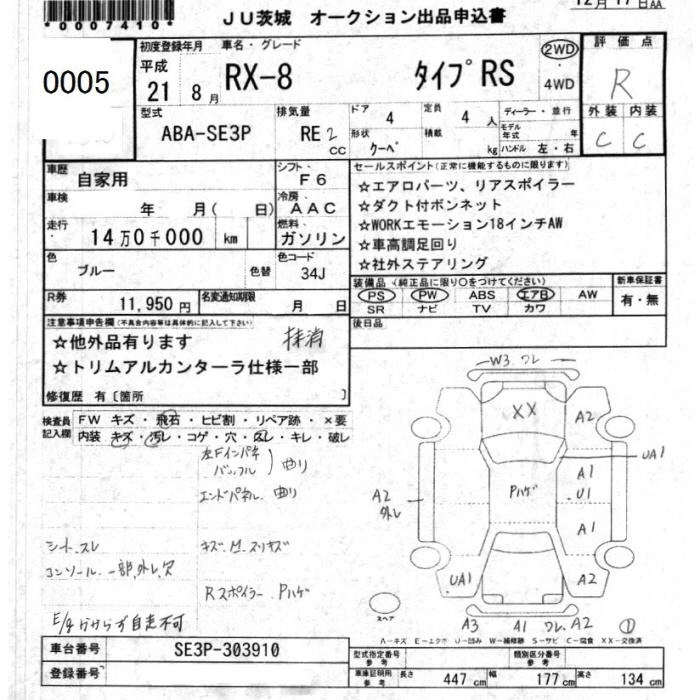 *0007410*
JU茨城 オークション出品申込書
12月 17日AA
0005
初度登録年月 車名・グレード 評価点
平成 21年 8月 RX-8 タイプRS 2WD・4WD R
型式 ABA-SE3P
排気量 RE2 cc
ドア 4 定員 4人
形状 クーペ 積載 kg
ディーラー・並行
モデル年式 年
ハンドル 左・右
外装 内装
C C
車歴 自家用
シフト F6
車検 年 月(日)
冷房 AAC
走行 14万0千000 km
燃料 ガソリン
色 ブルー 色替
色コード 34J
R券 11,950円 名変通知期限 月 日
セールスポイント(正常に機能するものに限ります)
☆エアロパーツ、リアスポイラー
☆ダクト付ボンネット
☆WORKエモーション18インチAW
☆車高調足回り
☆社外ステアリング
装備品(純正品に限り○をつけてください) 新車保証書
PS PW ABS エアB AW 有・無
SR ナビ TV カワ
後日品
注意事項申告欄(不具合内容等は具体的に記入して下さい)
☆他外品有ります 抹消
☆トリムアルカンターラ仕様一部
修復歴 有〔箇所 〕
検査員記入欄
FW キズ・飛石・ヒビ割・リペア跡・×要
内装 キズ・汚レ・コゲ・穴・スレ・キレ・破レ
左Fインパネ
バッフル 曲り
エンドパネル 曲り
シートスレ キズ
コンソール 一部外レ欠
Rスポイラー Pハゲ
自走不可
W3 ワレ
XX
A2
UA1
A1
U1
Pハゲ
A2
外レ
A1
UA1
A2
スペア
A3 A1 ワレ A2
①
A-キズ E-エクボ U-凹み W-補修跡 S-サビ C-腐食 XX-交換済
車台番号 SE3P-303910
登録番号
型式指定番号 参考 類別区分番号 参考
車庫証明用 参考 長さ 447cm 幅 177cm 高さ 134cm